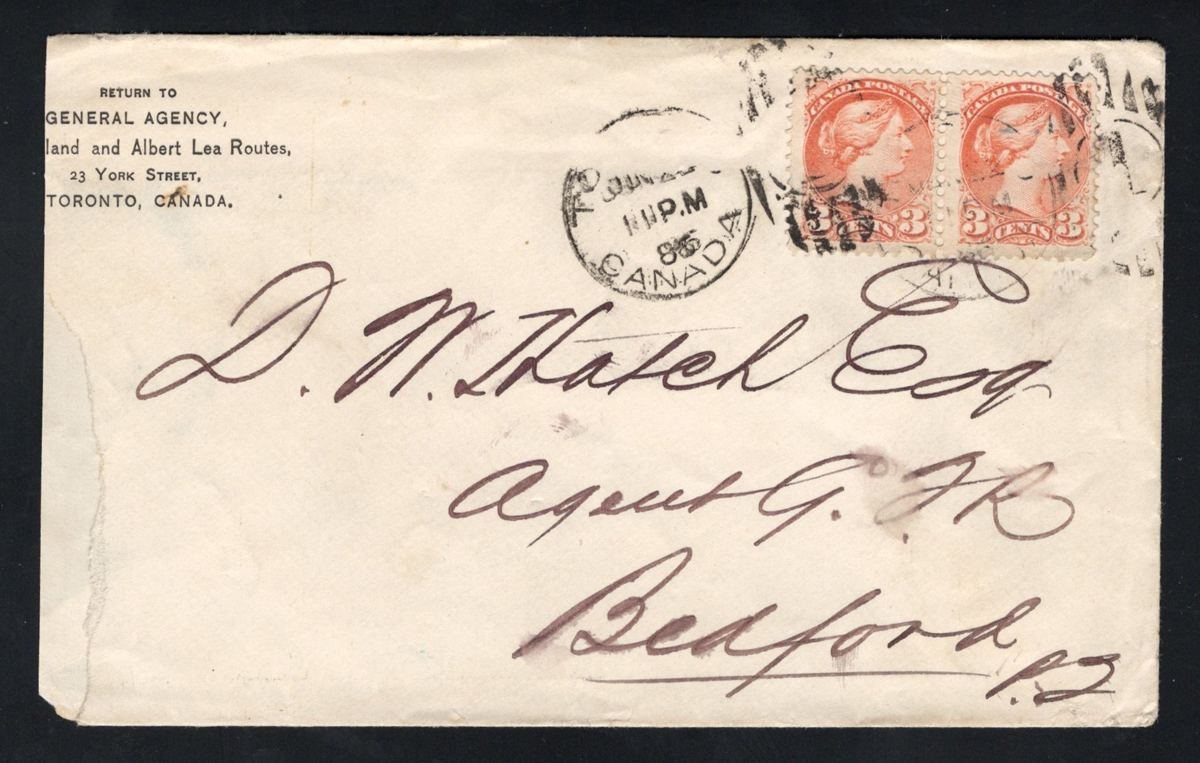 RETURN TO
GENERAL AGENCY,
land and Albert Lea Routes,
23 York Street,
TORONTO, CANADA.
11 P.M
86
CANADA
CANADA POSTAGE
3 CENTS 3
CANADA POSTAGE
3 CENTS 3
D. W. Hatch Esq
Agent G. T R
Bedford
P. Q